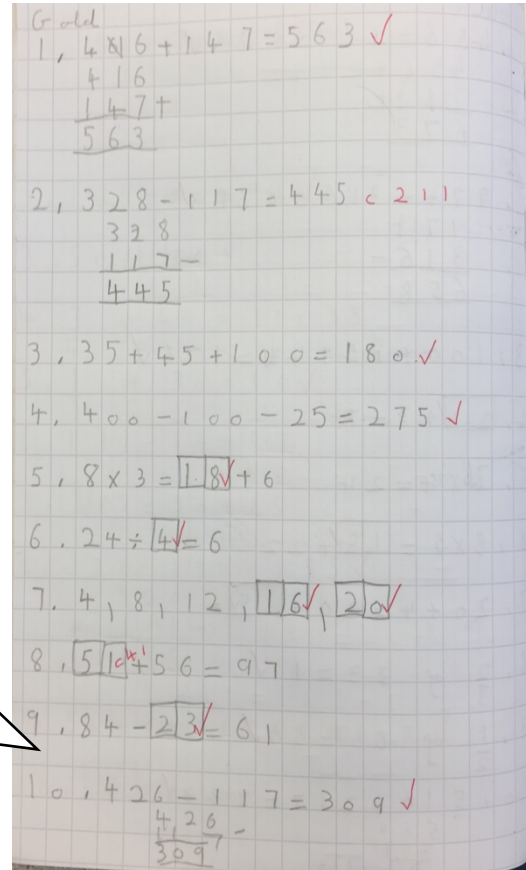 Gold
1, 416 + 147 = 563 ✓
416
147+
563
2, 328 - 117 = 445 c 211
328
117-
445
3, 35 + 45 + 100 = 180 ✓
4. 400 - 100 - 25 = 275 ✓
5, 8 x 3 = 18 ✓ + 6
6. 24 ÷ 4 ✓ = 6
7. 4, 8, 12, 16 ✓, 20 ✓
8, 51 c 41 + 56 = 97
9. 84 - 23 ✓ = 61
10. 426 - 117 = 309 ✓
426
117-
309